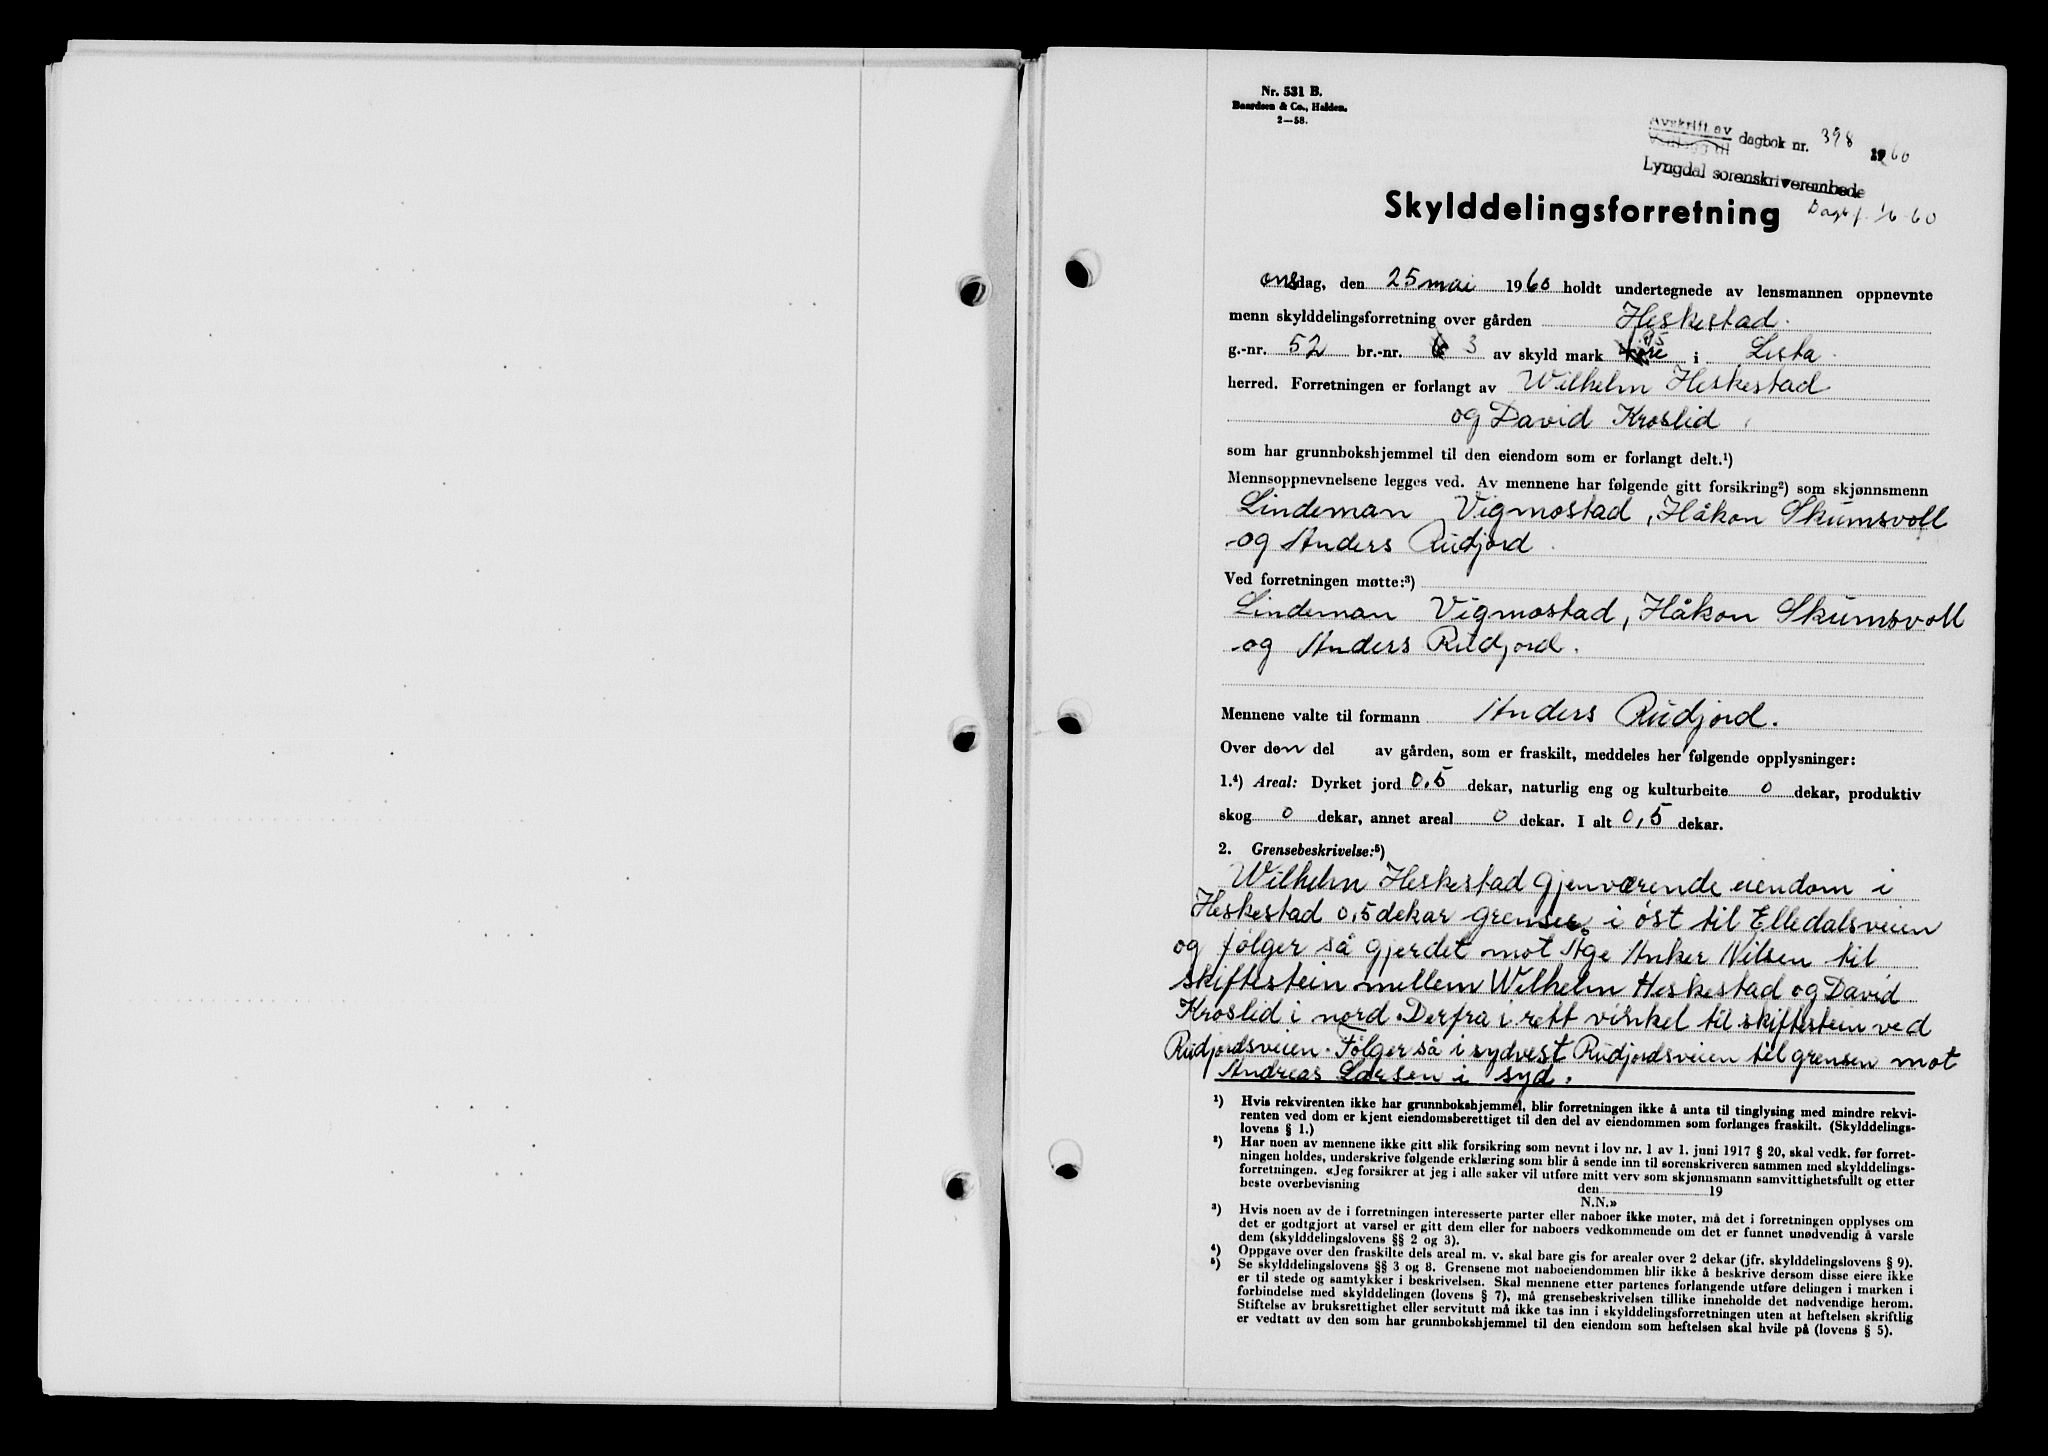 Nr. 531 B.
Baardsen & Co., Halden.
2—58.
Avskrift av
Vedlegg til
dagbok nr. 398 1960
Lyngdal sorenskriverembede
Dagbf. 1/6-60
Skylddelingsforretning
onsdag, den 25 mai 1960 holdt undertegnede av lensmannen oppnevnte
menn skylddelingsforretning over gården Heskestad.
g.-nr. 52 br.-nr. 3 av skyld mark i Lista.
herred. Forretningen er forlangt av Wilhelm Heskestad
og David Kroslid
som har grunnbokshjemmel til den eiendom som er forlangt delt.¹)
Mennsoppnevnelsene legges ved. Av mennene har følgende gitt forsikring²) som skjønnsmenn
Lindeman Vigmostad, Håkon Skumsvoll
og Anders Rudjord.
Ved forretningen møtte:³)
Lindeman Vigmostad, Håkon Skumsvoll
og Anders Rudjord.
Mennene valte til formann Anders Rudjord.
Over den del av gården, som er fraskilt, meddeles her følgende opplysninger:
1.⁴) Areal: Dyrket jord 0,5 dekar, naturlig eng og kulturbeite 0 dekar, produktiv
skog 0 dekar, annet areal 0 dekar. I alt 0,5 dekar.
2. Grensebeskrivelse:⁵)
Wilhelm Heskestad gjenværende eiendom i
Heskestad 0,5 dekar grenser i øst til Elledalsveien
og følger så gjerdet mot Åge Anker Nilsen til
skiftestein mellem Wilhelm Heskestad og David
Kroslid i nord. Derfra i rett vinkel til skiftestein ved
Rudjordsveien. Følger så i sydvest Rudjordsveien til grensen mot
Andreas Larsen i syd.
¹) Hvis rekvirenten ikke har grunnbokshjemmel, blir forretningen ikke å anta til tinglysing med mindre rekvi-
renten ved dom er kjent eiendomsberettiget til den del av eiendommen som forlanges fraskilt. (Skylddelings-
lovens § 1.)
²) Har noen av mennene ikke gitt slik forsikring som nevnt i lov nr. 1 av 1. juni 1917 § 20, skal vedk. før forret-
ningen holdes, underskrive følgende erklæring som blir å sende inn til sorenskriveren sammen med skylddelings-
forretningen. «Jeg forsikrer at jeg i alle saker vil utføre mitt verv som skjønnsmann samvittighetsfullt og etter
beste overbevisning den 19
N.N.»
³) Hvis noen av de i forretningen interesserte parter eller naboer ikke møter, må det i forretningen opplyses om
det er godtgjort at varsel er gitt dem eller for naboers vedkommende om det er funnet unødvendig å varsle
dem (skylddelingslovens §§ 2 og 3).
⁴) Oppgave over den fraskilte dels areal m. v. skal bare gis for arealer over 2 dekar (jfr. skylddelingslovens § 9).
⁵) Se skylddelingslovens §§ 3 og 8. Grensene mot naboeiendommen blir ikke å beskrive dersom disse eiere ikke
er til stede og samtykker i beskrivelsen. Skal mennene etter partenes forlangende utføre delingen i marken i
forbindelse med skylddelingen (lovens § 7), må grensebeskrivelsen tillike inneholde det nødvendige herom.
Stiftelse av bruksrettighet eller servitutt må ikke tas inn i skylddelingsforretningen uten at heftelsen skriftlig
er vedtatt av den som har grunnbokshjemmel til den eiendom som heftelsen skal hvile på (lovens § 5).